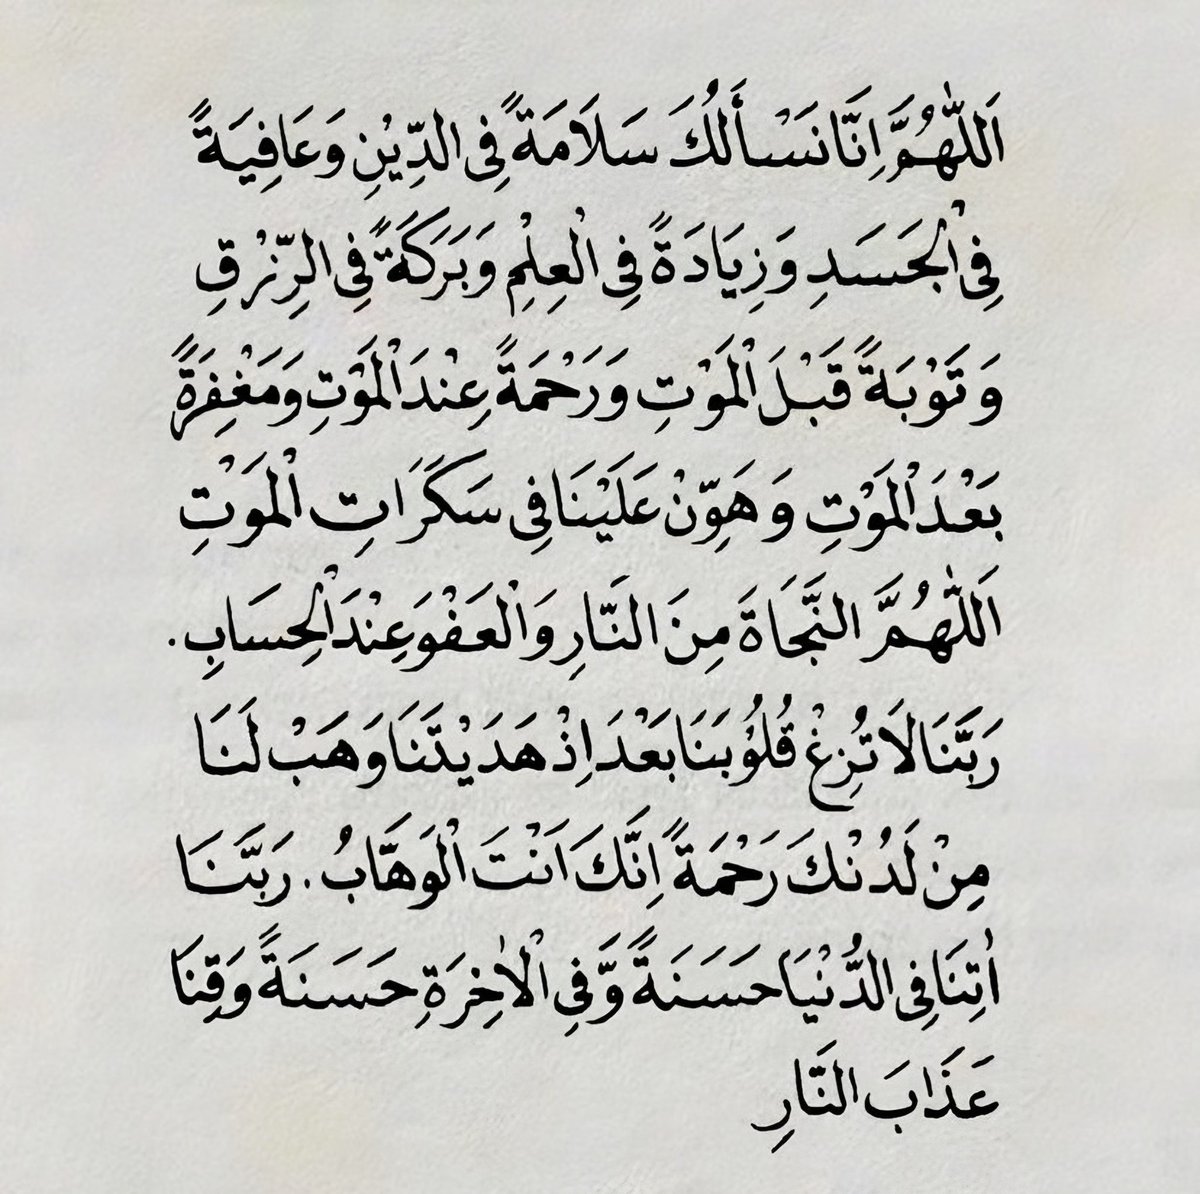 اَللّٰهُمَّ اِنَّا نَسْأَلُكَ سَلَامَةً فِى الدِّيْنِ وَعَافِيَةً
فِى الْجَسَدِ وَزِيَادَةً فِى الْعِلْمِ وَبَرَكَةً فِى الرِّزْقِ
وَتَوْبَةً قَبْلَ الْمَوْتِ وَرَحْمَةً عِنْدَ الْمَوْتِ وَمَغْفِرَةً
بَعْدَ الْمَوْتِ وَهَوِّنْ عَلَيْنَا فِى سَكَرَاتِ الْمَوْتِ
اَللّٰهُمَّ النَّجَاةَ مِنَ النَّارِ وَالْعَفْوَ عِنْدَ الْحِسَابِ.
رَبَّنَا لَا تُزِغْ قُلُوْبَنَا بَعْدَ اِذْ هَدَيْتَنَا وَهَبْ لَنَا
مِنْ لَدُنْكَ رَحْمَةً اِنَّكَ اَنْتَ الْوَهَّابُ. رَبَّنَا
اٰتِنَا فِى الدُّنْيَا حَسَنَةً وَّفِى الْاٰخِرَةِ حَسَنَةً وَقِنَا
عَذَابَ النَّارِ